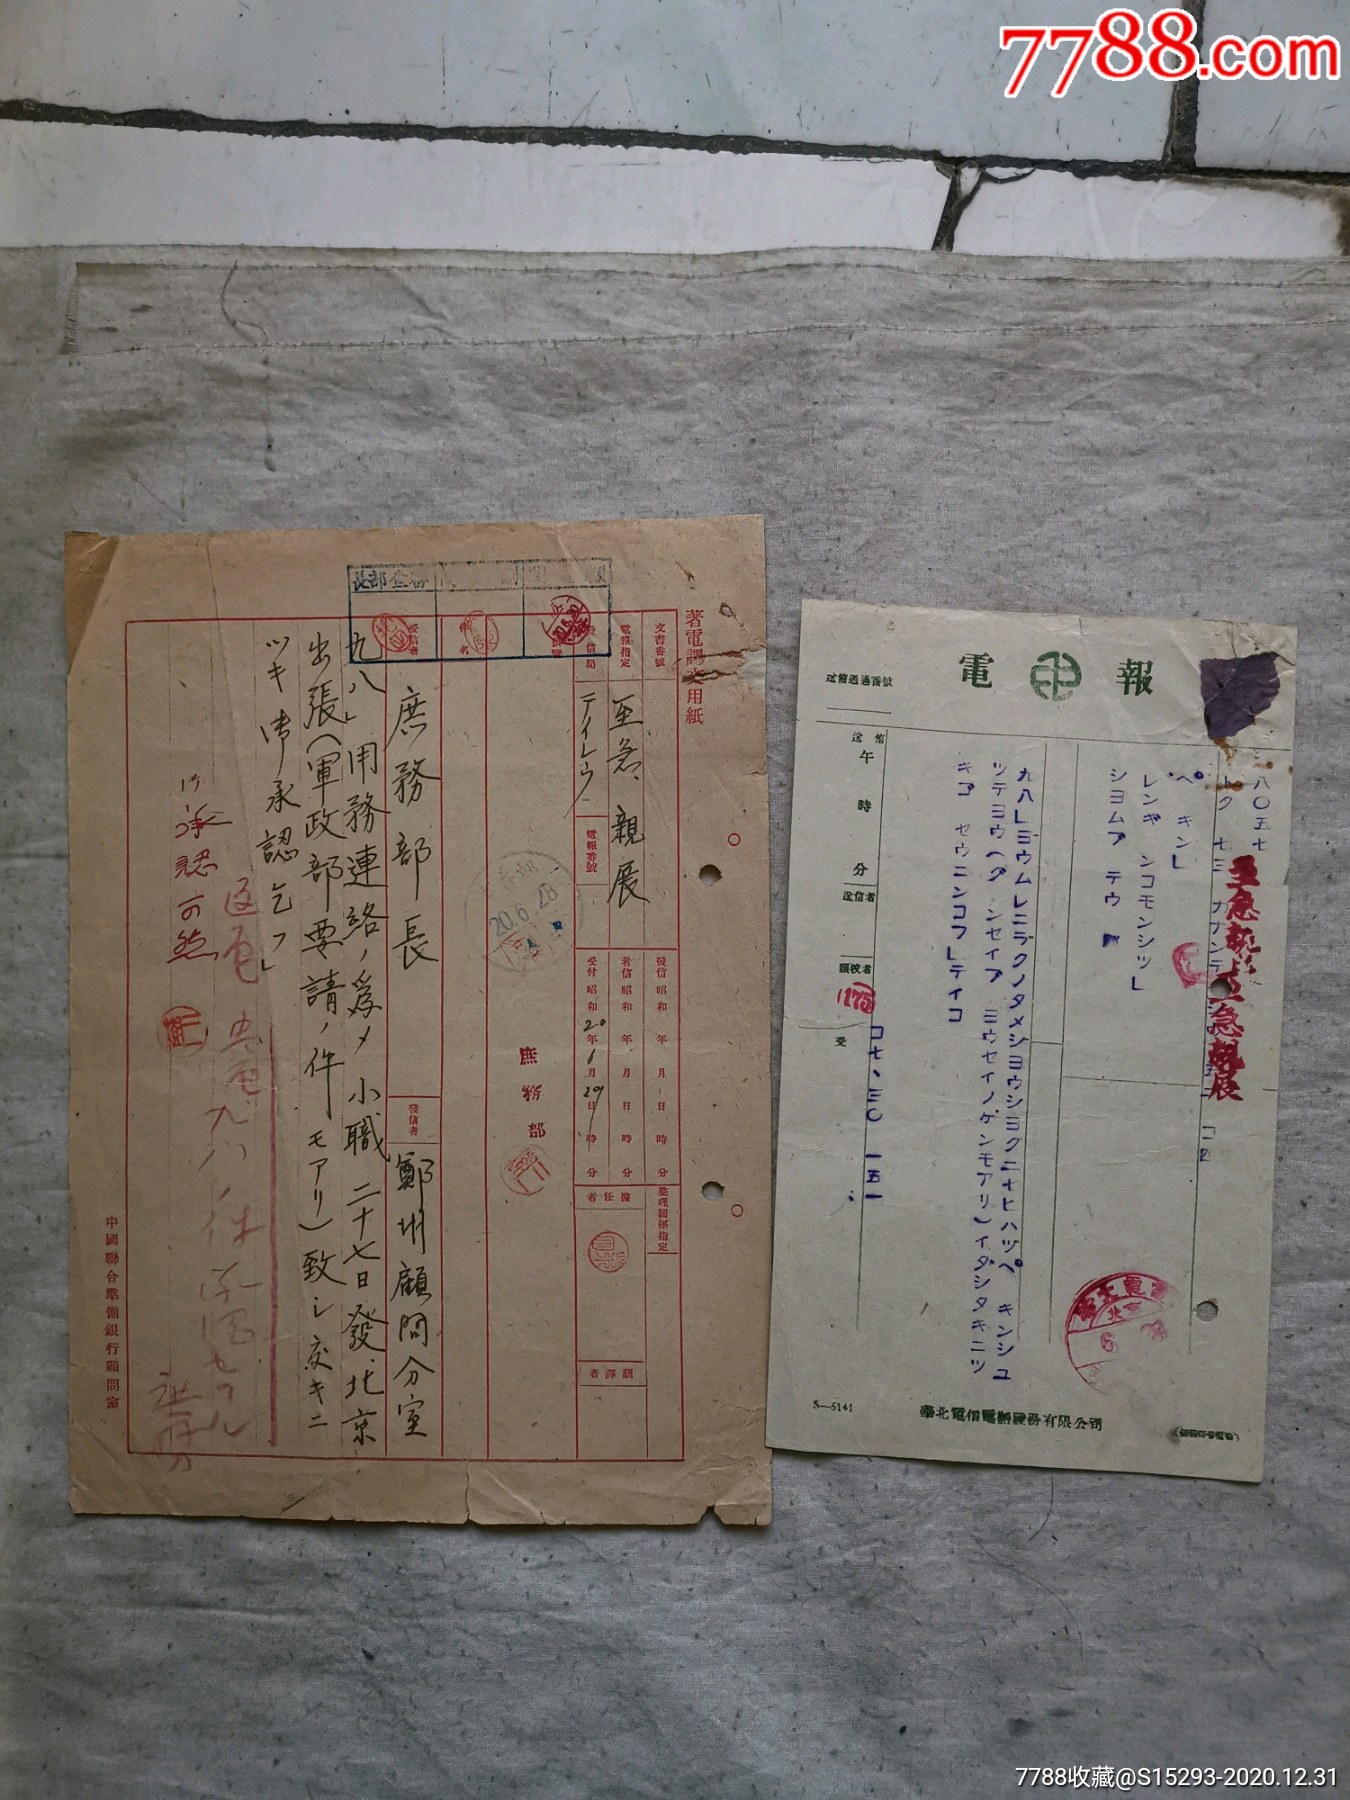 7788.com
著電譯文用紙
文書番號
電報指定
至急、親展
發信局
テイレウ
電報番號
發信昭和 年 月 日 時 分
着信昭和 年 月 日 時 分
受付昭和20年6月29日 時 分
整理關係指定
擔任者
飜譯者
20.6.28
庶務部
受信者
庶務部長
發信者
鄭州顧問分室
九八」用務連絡ノ爲メ小職二十七日發北京
出張(軍政部要請ノ件モアリ)致シ度キニ
ツキ御承認乞フ」
承認可然
返電
中國聯合準備銀行顧問室
電報
送信通過番號
八〇五七
至急親展
至急親展
ペキン」
レンギンコモンシツ」
シヨムブテウ
九八」ヨウムレンラクノタメシヨウシヨクニナヒハツペキンシユ
ツテヨウ(グンセイブヨウセイノケンモアリ)イタシタキニツ
キゴセウニンコフ」テイコ
送信
午
時
分
送信者
受
S—5141
華北電信電話股份有限公司
7788收藏@S15293-2020.12.31